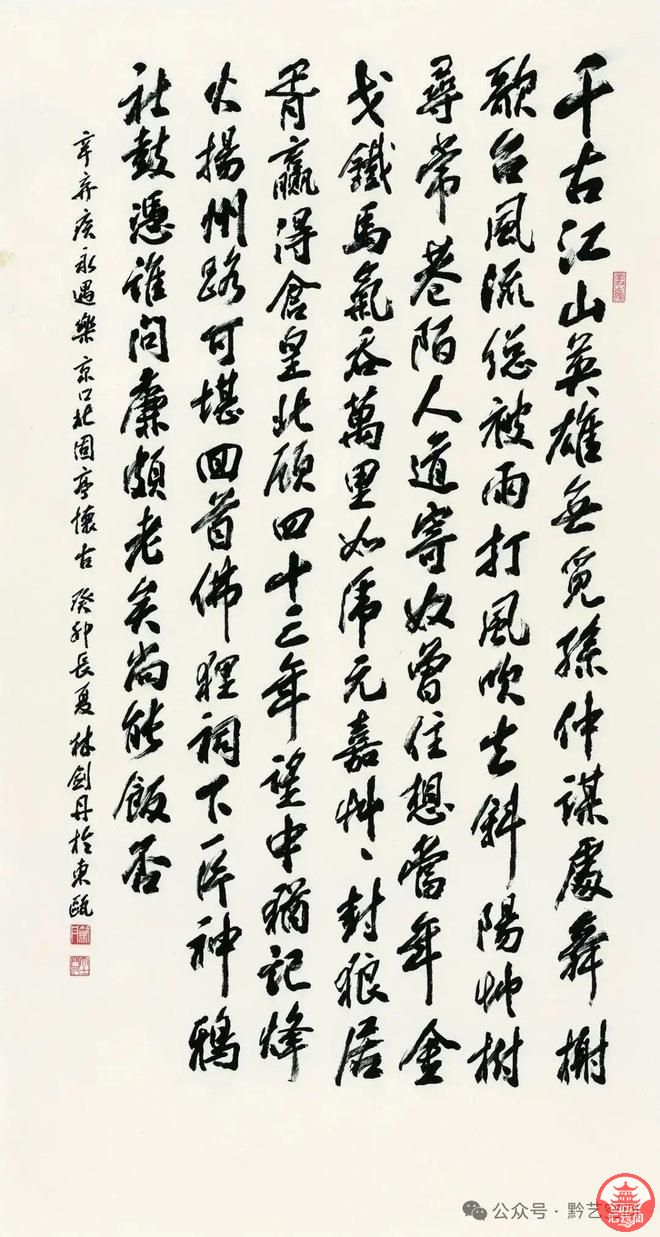 千古江山英雄無覓孫仲謀處舞榭
歌台風流總被雨打風吹去斜陽艸樹
尋常巷陌人道寄奴曾住想當年金
戈鐵馬氣吞萬里如虎元嘉艸〻封狼居
胥贏得倉皇北顧四十三年望中猶記烽
火揚州路可堪回首佛狸祠下一片神鴉
社鼓憑誰問廉頗老矣尚能飯否
辛弃疾永遇樂 京口北固亭懷古 癸卯長夏林劍丹於東甌
公众号 · 黔艺